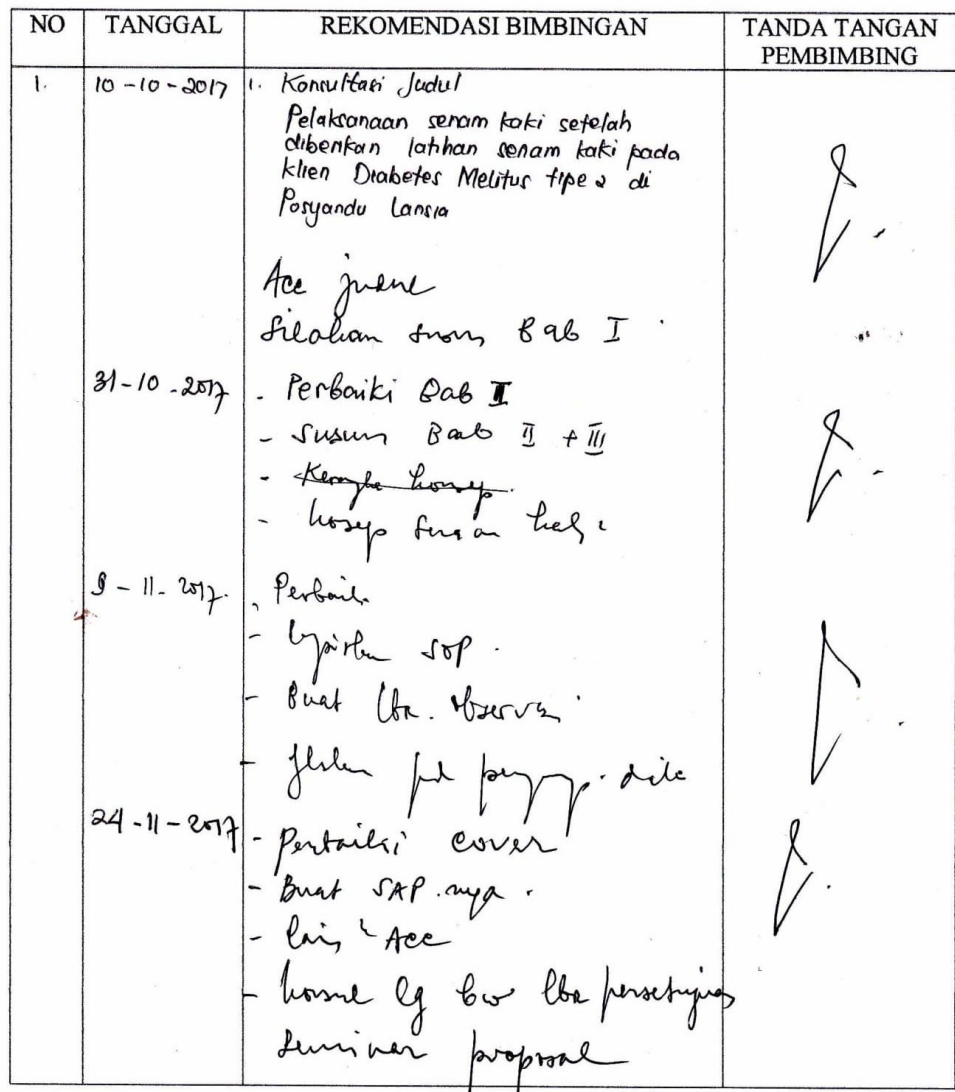 NO TANGGAL REKOMENDASI BIMBINGAN TANDA TANGAN PEMBIMBING
1. 10-10-2017 1. Konsultasi Judul
Pelaksanaan senam kaki setelah
diberikan latihan senam kaki pada
klien Diabetes Melitus tipe 2 di
Posyandu Lansia
Acc judul
Silahkan susun Bab I
31-10-2017 - Perbaiki Bab II
- Susun Bab II + III
- Kerangka konsep
9-11-2017. - Perbaiki
- SOP.
- Buat lbr. observasi
24-11-2017 - Perbaiki cover
- Buat SAP.nya.
- lain2 Acc
- konsul lg bw lbr persetujuan
seminar proposal